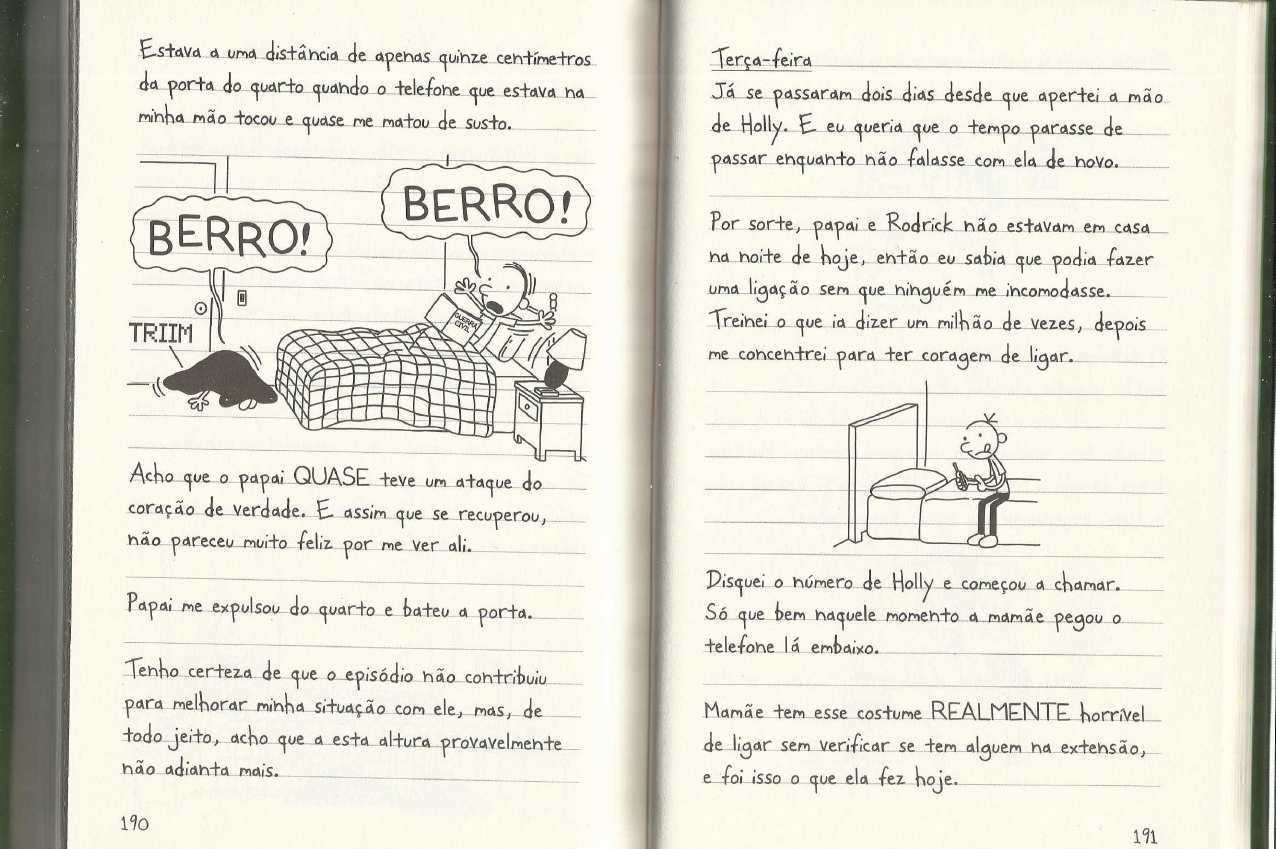 Estava a uma distância de apenas quinze centímetros
da porta do quarto quando o telefone que estava na
minha mão tocou e quase me matou de susto.
BERRO!
BERRO!
TRIIM
GUERRA
CIVIL
Acho que o papai QUASE teve um ataque do
coração de verdade. E assim que se recuperou,
não pareceu muito feliz por me ver ali.
Papai me expulsou do quarto e bateu a porta.
Tenho certeza de que o episódio não contribuiu
para melhorar minha situação com ele, mas, de
todo jeito, acho que a esta altura provavelmente
não adianta mais.
190
Terça-feira
Já se passaram dois dias desde que apertei a mão
de Holly. E eu queria que o tempo parasse de
passar enquanto não falasse com ela de novo.
Por sorte, papai e Rodrick não estavam em casa
na noite de hoje, então eu sabia que podia fazer
uma ligação sem que ninguém me incomodasse.
Treinei o que ia dizer um milhão de vezes, depois
me concentrei para ter coragem de ligar.
Disquei o número de Holly e começou a chamar.
Só que bem naquele momento a mamãe pegou o
telefone lá embaixo.
Mamãe tem esse costume REALMENTE horrível
de ligar sem verificar se tem alguem na extensão,
e foi isso o que ela fez hoje.
191